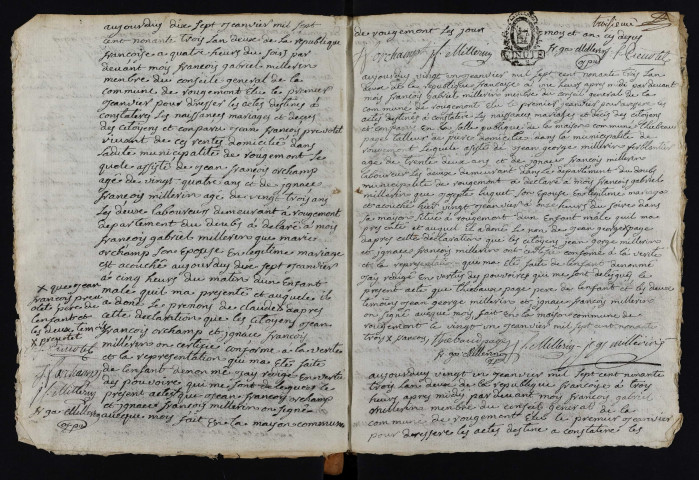 aujourduy dixe sept jeanvier mil sept
cent nonante trois lan deux de la republique
francoise a quatre heurs du soirs par
devant mois francois gabriel millerin
menbre du conseile general de la
commune de rougemont Elu le premier
jeanvier pour dresser les actes destinés à
constateres les naissances mariages et deces
des citoyens et conparru jean francois prevotet
vivant de ces rentes domicilié dans
ladite municipalités de rougemont le
quele assisté de jean francois orchamp
agé de vingt quatre ans et de ignace
francois millerin age de vingt trois ans
les deux laboureurs demeurant a rougemont
departement du doubs à delaré à mois
francois gabriel millerin que marie
orchamp son Epouse En legitime mariage
est acouché aujourduy dixe sept jeanvier
a cinq heurs du matin dun enfant
male quil ma presenté et auquele ils
a donné le prenons de claude dapres
cette declaration que les citoyens jean
francois orchamp et ignace francois
millerin on certifié conforme a la verité
et la representation qui ma etés faite
de lenfant denonmé jay redigé En vertue
des pouvoire qui me sont delegués le
present actes que jean francois orchamp
et ignace francois millerin on signée
avecque mois fait En la maison commune
x que jean
francois prevo
tet père de
lenfant et
les deux temoi
x prevotet
J f orchamp
f g millerin
fr ga Millerin
off p
troisieme
de rougement les jour mois et an cy dessus
J f orchamp J f Millerin fr ga Millerin prevotet
off p
aujourduy vingt un jeanvier mil sept cent nonante trois lan
deux de la republique francaise à une heurs après midi par devant
mois francois gabriel millerin menbre du conseil general de la
commune de rougemont Elu le premier jeanvier pour dresser les
actes destinés à constater les naissances mariages et deces des citoyens
et conparru En la salle publique de la maison commune thiebau
page tailleur de pierre domicilie dans la municipalité de
rougemont lequele assisté de jean george millerin
age de trente deux ans et de ignace francois millerin
laboureur les deux demeurant dans le departement du doubs
municipalités de rougemont a declaré à mois francois gabriel
millerin que son Epouse En legitime mariage
est acouché hiere vingt jeanvier à heurs du soire dans
sa maison située à rougemont dun Enfant male quil ma
presenté et auquel il à donné le non de jean george page
dapres cette déclaration que les citoyens jean george millerin
et ignace francois millerin ont certifié conforme à la verité
et la representation qui ma etés faite de lenfant denonmé
jay redigé En vertue des pouvoires qui me sont delegués le
present acte que thiebaux page pere de lenfant et les deux
temoins jean george millerin et ignace francois millerin
on signé avecque mois fait en la maison commune de
rougemont le vingt un jeanvier mil sept cent nonante
trois
fr ga Millerin
off p
aujourduy vingt un jeanvier mil sept cent nonante
trois lan deux de la republique francoise à trois
heurs après midi par devant mois francois gabriel
millerin menbre du conseil general de la
commune de rougemont Elu le premier jeanvier
pour dressere les actes destine a constatere les